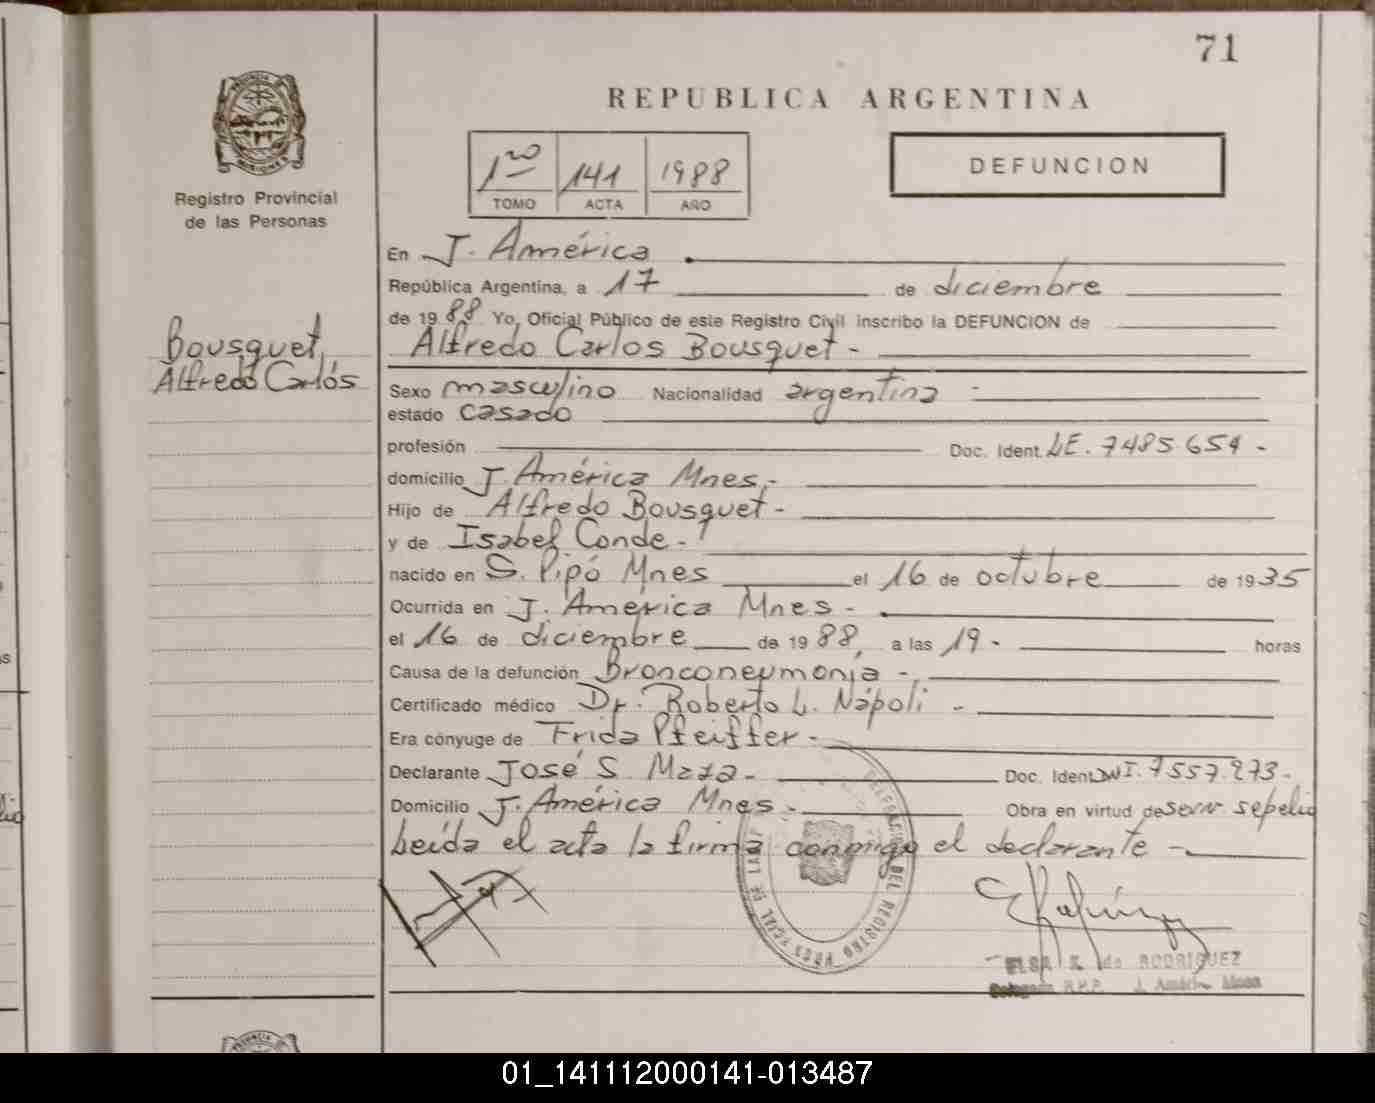 71
REPUBLICA ARGENTINA
PROVINCIA DE MISIONES
Registro Provincial
de las Personas
1ro 141 1988
TOMO ACTA AÑO
DEFUNCION
Bousquet,
Alfredo Carlos
En J. América
República Argentina, a 17 de diciembre
de 1988 Yo, Oficial Público de este Registro Civil inscribo la DEFUNCION de
Alfredo Carlos Bousquet -
Sexo masculino Nacionalidad argentina
estado casado
profesión Doc. Ident. LE. 7485654 -
domicilio J. América Mnes. -
Hijo de Alfredo Bousquet -
y de Isabel Conde. -
nacido en S. Pipó Mnes el 16 de octubre de 1935
Ocurrida en J. América Mnes -
el 16 de diciembre de 1988, a las 19 - horas
Causa de la defunción Bronconeumonia -
Certificado médico Dr. Roberto L. Nápoli -
Era cónyuge de Frida Pfeiffer -
Declarante José S. Maza - Doc. Ident. DNI. 7557.273 -
Domicilio J. América Mnes - Obra en virtud de serv. sepelio
Leída el acta la firma conmigo el declarante -
ELSA de RODRIGUEZ
Delegada R.P.P. J. América Mnes
01_141112000141-013487